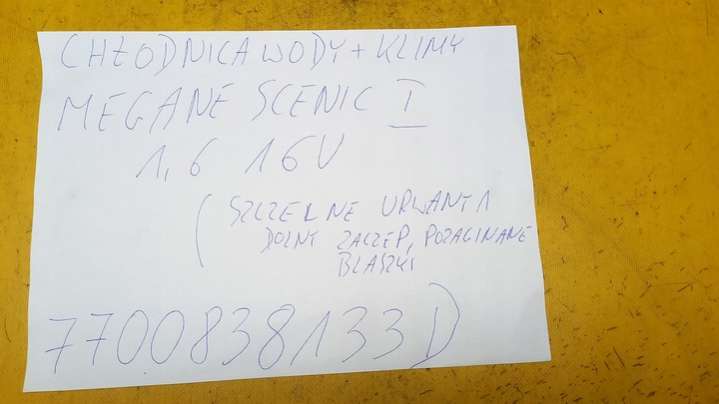 CHŁODNICA WODY + KLIMY
MEGANE SCENIC I
1,6 16V
(SZCZELNE URWANY 1
DOLNY ZACZEP, POZAGINANE
BLASZKI
7700838133D